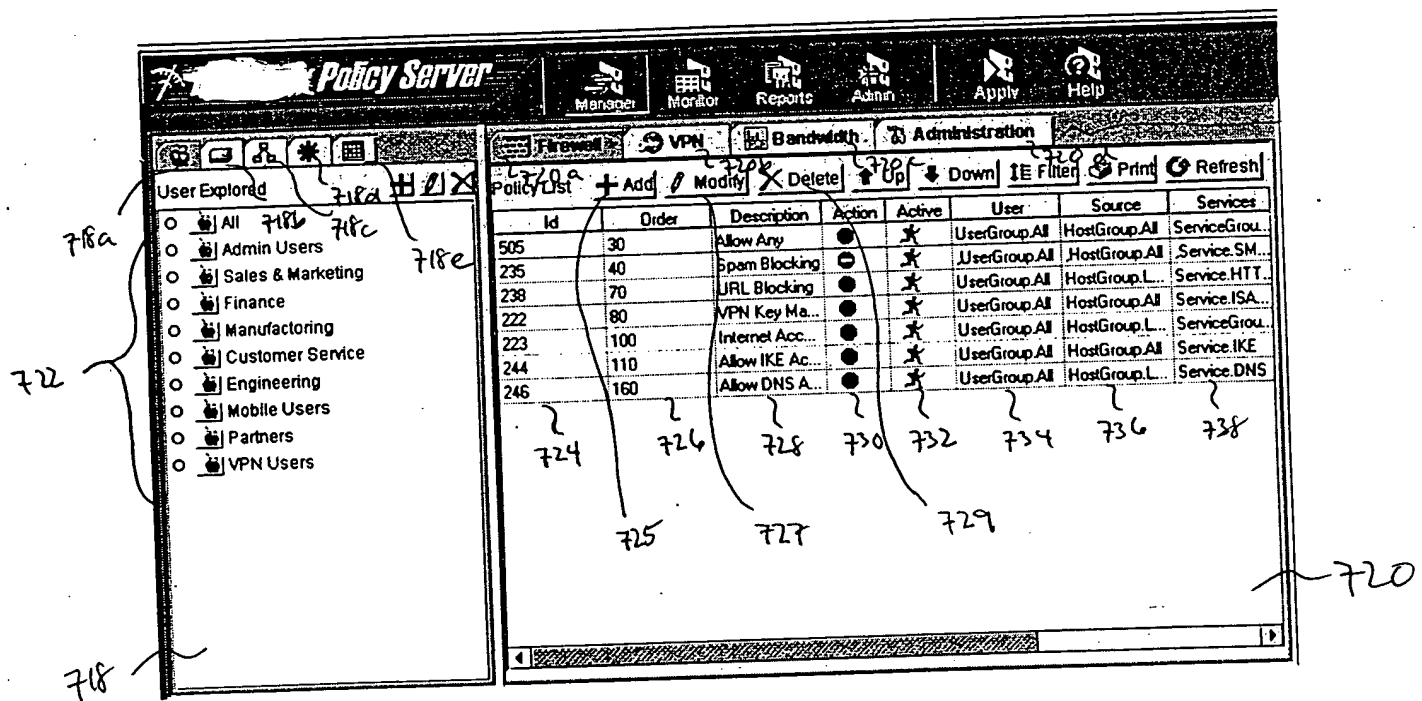 Policy Server
Manager Monitor Reports Admin Apply Help
Firewall VPN Bandwidth Administration
720a 720b 720c 720d
User Explored
Policy List Add Modify Delete Up Down Filter Print Refresh
718a 718b 718c 718d 718e
All
Admin Users
Sales & Marketing
Finance
Manufactoring
Customer Service
Engineering
Mobile Users
Partners
VPN Users
722
718
Id Order Description Action Active User Source Services
505 30 Allow Any UserGroup.All HostGroup.All ServiceGrou...
235 40 Spam Blocking ,UserGroup.All ,HostGroup.All ,Service.SM...
238 70 URL Blocking UserGroup.All HostGroup.L... Service.HTT...
222 80 VPN Key Ma... UserGroup.All HostGroup.All Service.ISA...
223 100 Internet Acc... UserGroup.All HostGroup.L... ServiceGrou...
244 110 Allow IKE Ac... UserGroup.All HostGroup.All Service.IKE
246 160 Allow DNS A... UserGroup.All HostGroup.L... Service.DNS
724 726 728 730 732 734 736 738
725 727 729
720